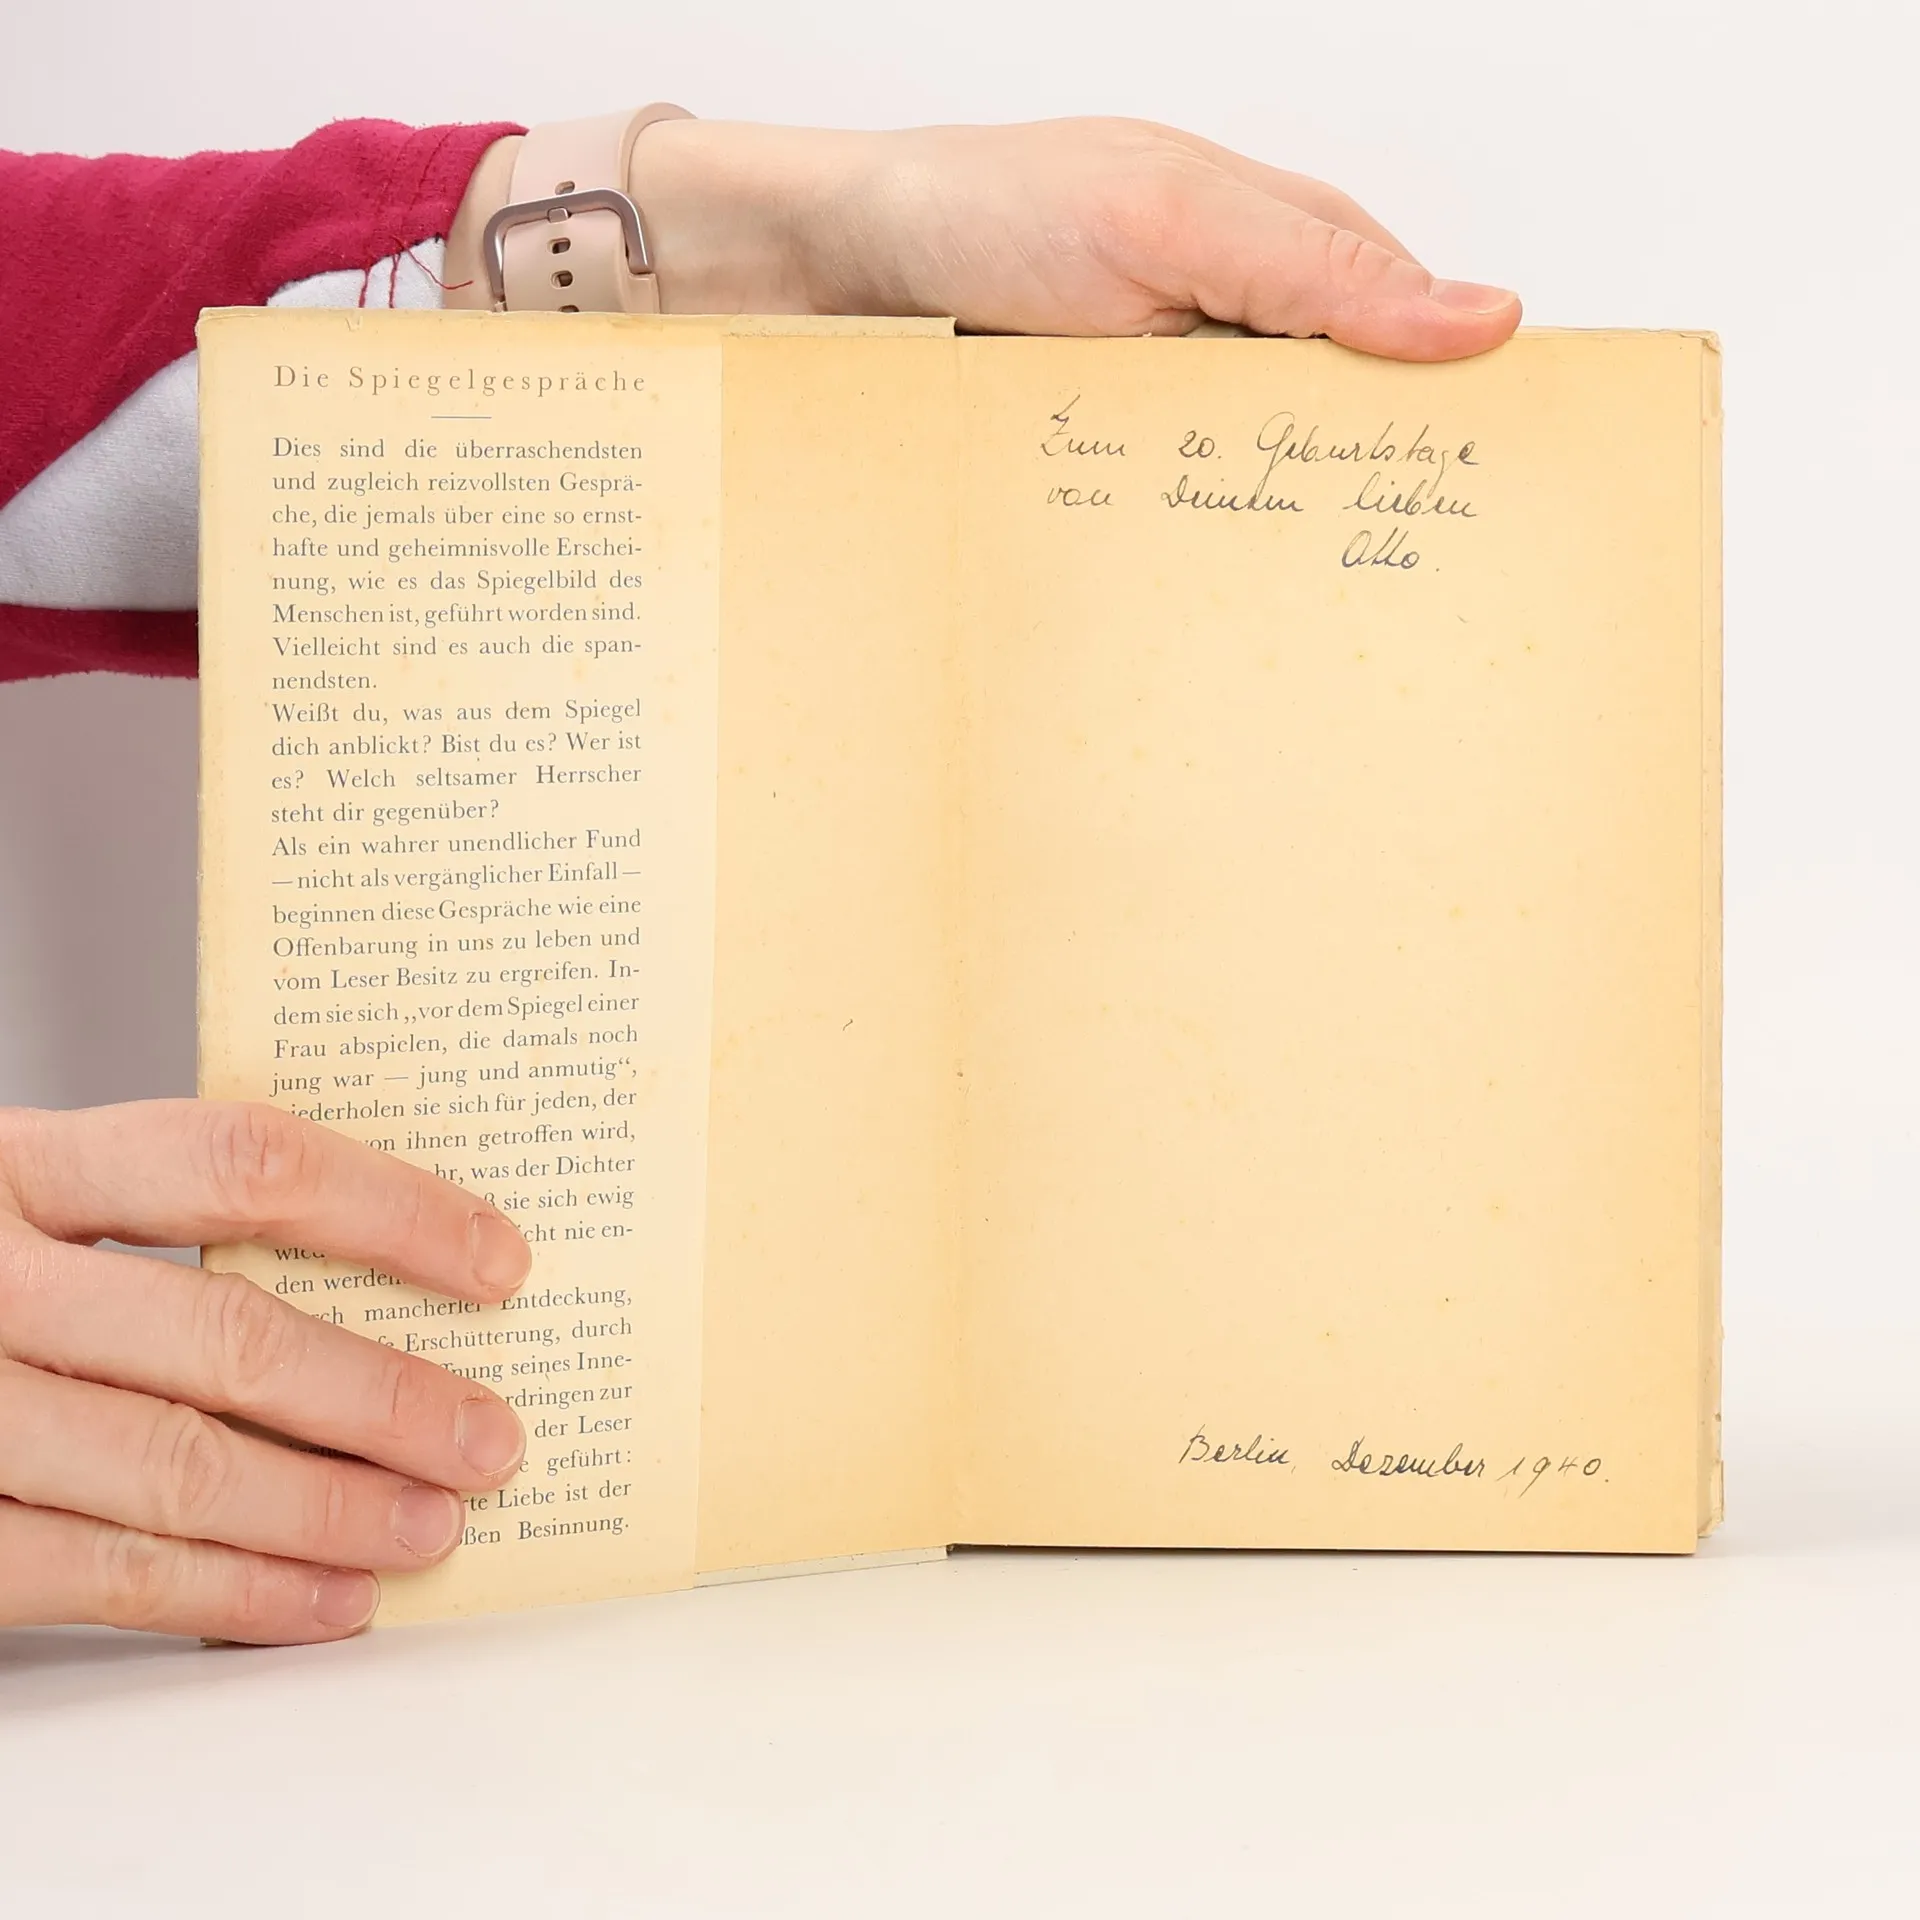 Die Spiegelgespräche
Dies sind die überraschendsten
und zugleich reizvollsten Gesprä-
che, die jemals über eine so ernst-
hafte und geheimnisvolle Erschei-
nung, wie es das Spiegelbild des
Menschen ist, geführt worden sind.
Vielleicht sind es auch die span-
nendsten.
Weißt du, was aus dem Spiegel
dich anblickt? Bist du es? Wer ist
es? Welch seltsamer Herrscher
steht dir gegenüber?
Als ein wahrer unendlicher Fund
— nicht als vergänglicher Einfall —
beginnen diese Gespräche wie eine
Offenbarung in uns zu leben und
vom Leser Besitz zu ergreifen. In-
dem sie sich „vor dem Spiegel einer
Frau abspielen, die damals noch
jung war — jung und anmutig“,
iederholen sie sich für jeden, der
von ihnen getroffen wird,
hr, was der Dichter
ß sie sich ewig
icht nie en-
den werden.
rch mancherlei Entdeckung,
fe Erschütterung, durch
ffnung seines Inne-
rdringen zur
der Leser
e geführt:
rte Liebe ist der
ßen Besinnung.
Zum 20. Geburtstage
von Deinem lieben
Otto.
Berlin, Dezember 1940.